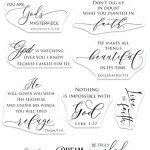 YOU ARE
God's
MASTERPIECE
EPHESIANS 2:10
DON'T DIG UP
IN DOUBT WHAT
YOU PLANTED IN
faith
God IS WATCHING
OVER YOU AND I KNOW
BECAUSE I ASKED HIM TO
HE MAKES ALL
THINGS
beautiful
IN ITS TIME
ECCLESIASTES 3:11
HE WILL COVER
YOU WITH HIS
FEATHERS AND UNDER
HIS WINGS YOU
WILL FIND
refuge
PSALM 91:4
NOTHING
IS IMPOSSIBLE
WITH
GOD
LUKE 1:37
Live
by
faith